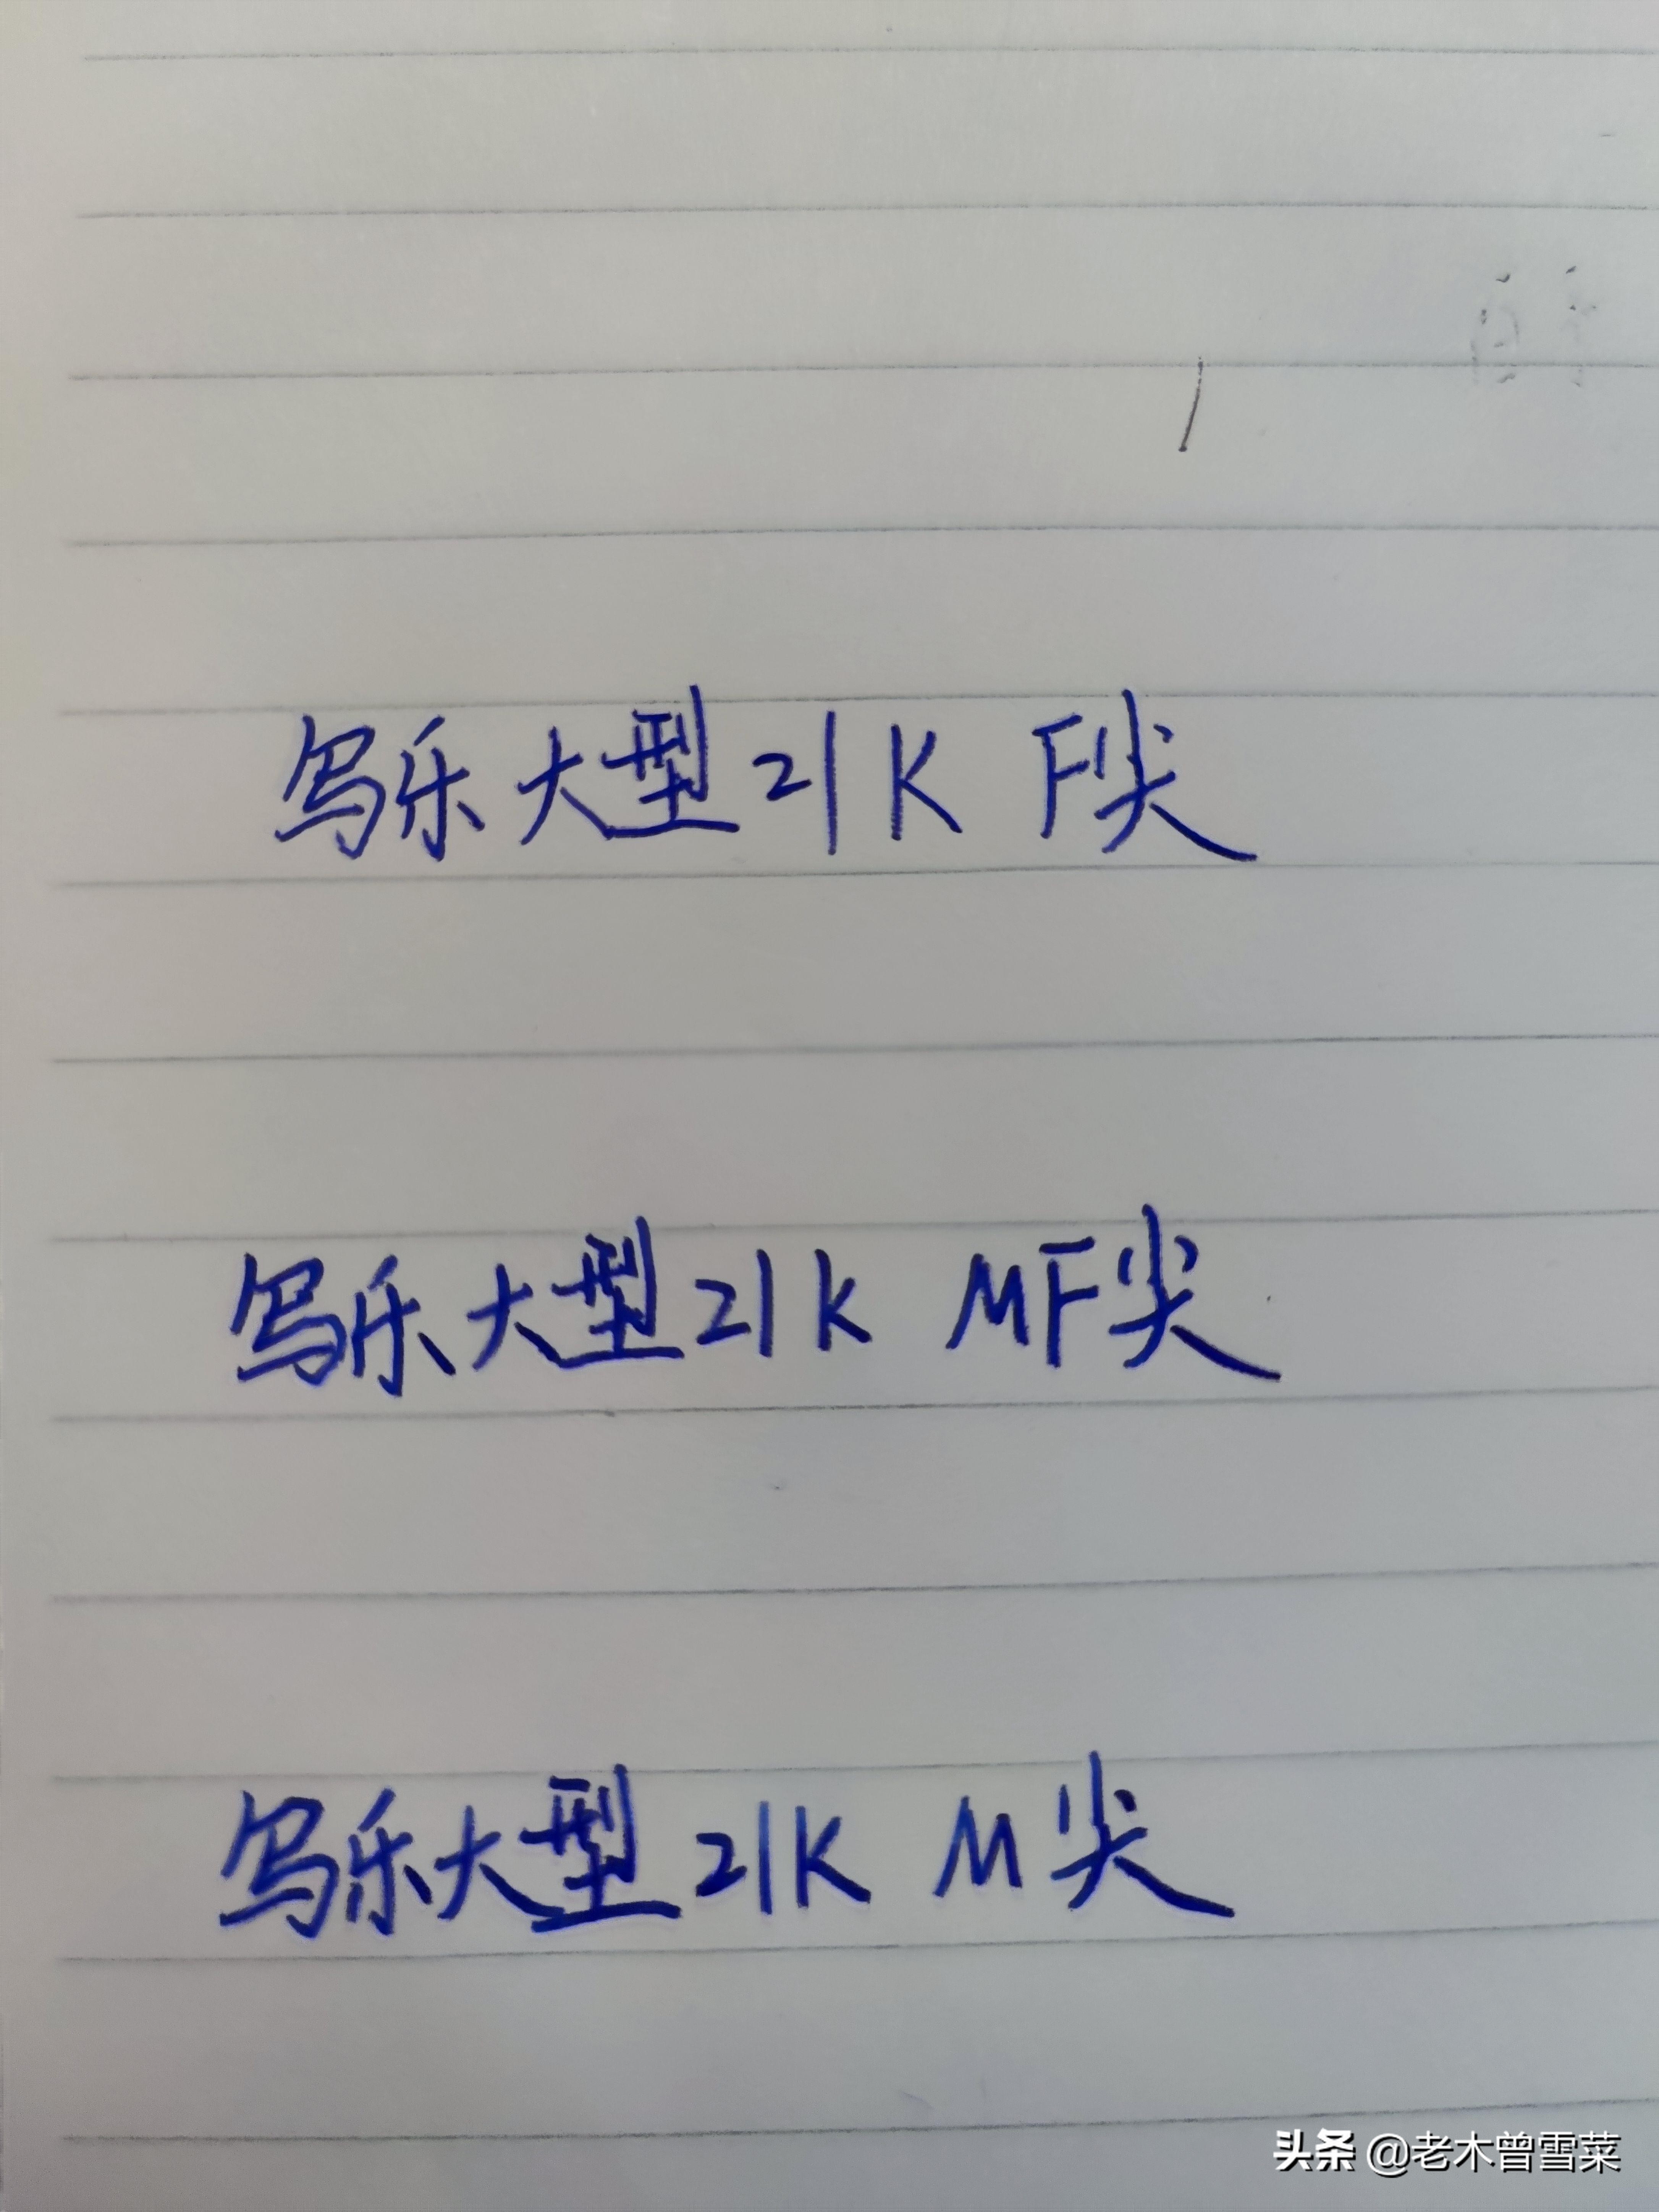 写乐大型21K F尖
写乐大型21K MF尖
写乐大型21K M尖
头条 @老木曾雪菜